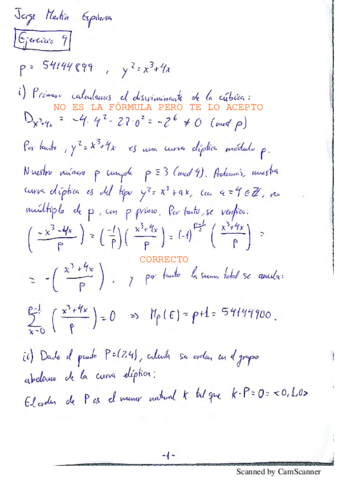 Jorge Martín Espinosa
Ejercicio 9
p = 54144899 , y² = x³+4x
i) Primero calculamos el discriminante de la cúbica:
NO ES LA FÓRMULA PERO TE LO ACEPTO
D_{x³+4x} = -4·4³ - 27·0² = -2⁸ ≠ 0 (mod p)
Por tanto, y² = x³+4x es una curva elíptica módulo p.
Nuestro número p cumple p ≡ 3 (mod 4). Además, nuestra
curva elíptica es del tipo y² = x³+ax, con a = 4 ∈ ℤ, no
múltiplo de p, con p primo. Por tanto, se verifica:
(-x³-4x / p) = (-1 / p) (x³+4x / p) = (-1)^{(p-1)/2} (x³+4x / p) =
CORRECTO
= - (x³+4x / p) , y por tanto la suma total se anula:
∑_{x=0}^{p-1} (x³+4x / p) = 0 ⇒ Np(E) = p+1 = 54144900.
ii) Dado el punto P=(2,4), calcula su orden en el grupo
abeliano de la curva elíptica:
El orden de P es el menor natural k tal que k·P = O = <0,1,0>
-1-
Scanned by CamScanner